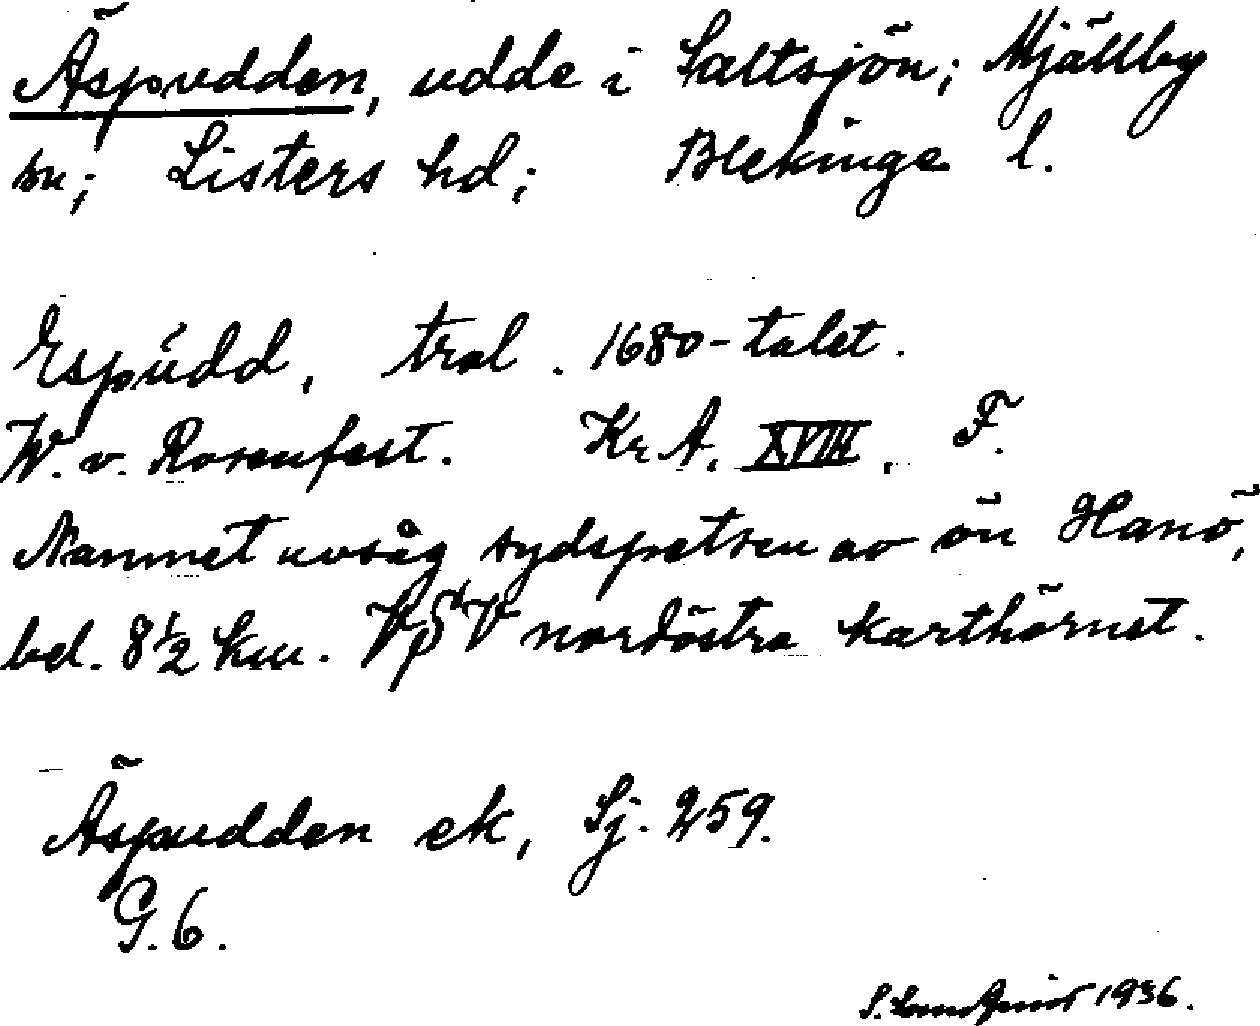 Äspudden, udde i Saltsjön; Mjällby
sn; Listers hd; Blekinge l.
Espúdd, trol. 1680-talet.
W. v. Rosenfelt. Kr A. XVIII. F.
Namnet utsåg sydspetsen av ön Hanö,
bel. 8½ km. nordöstra karthörnet.
Äspudden ek, Sj. 259.
G. 6.
1936.